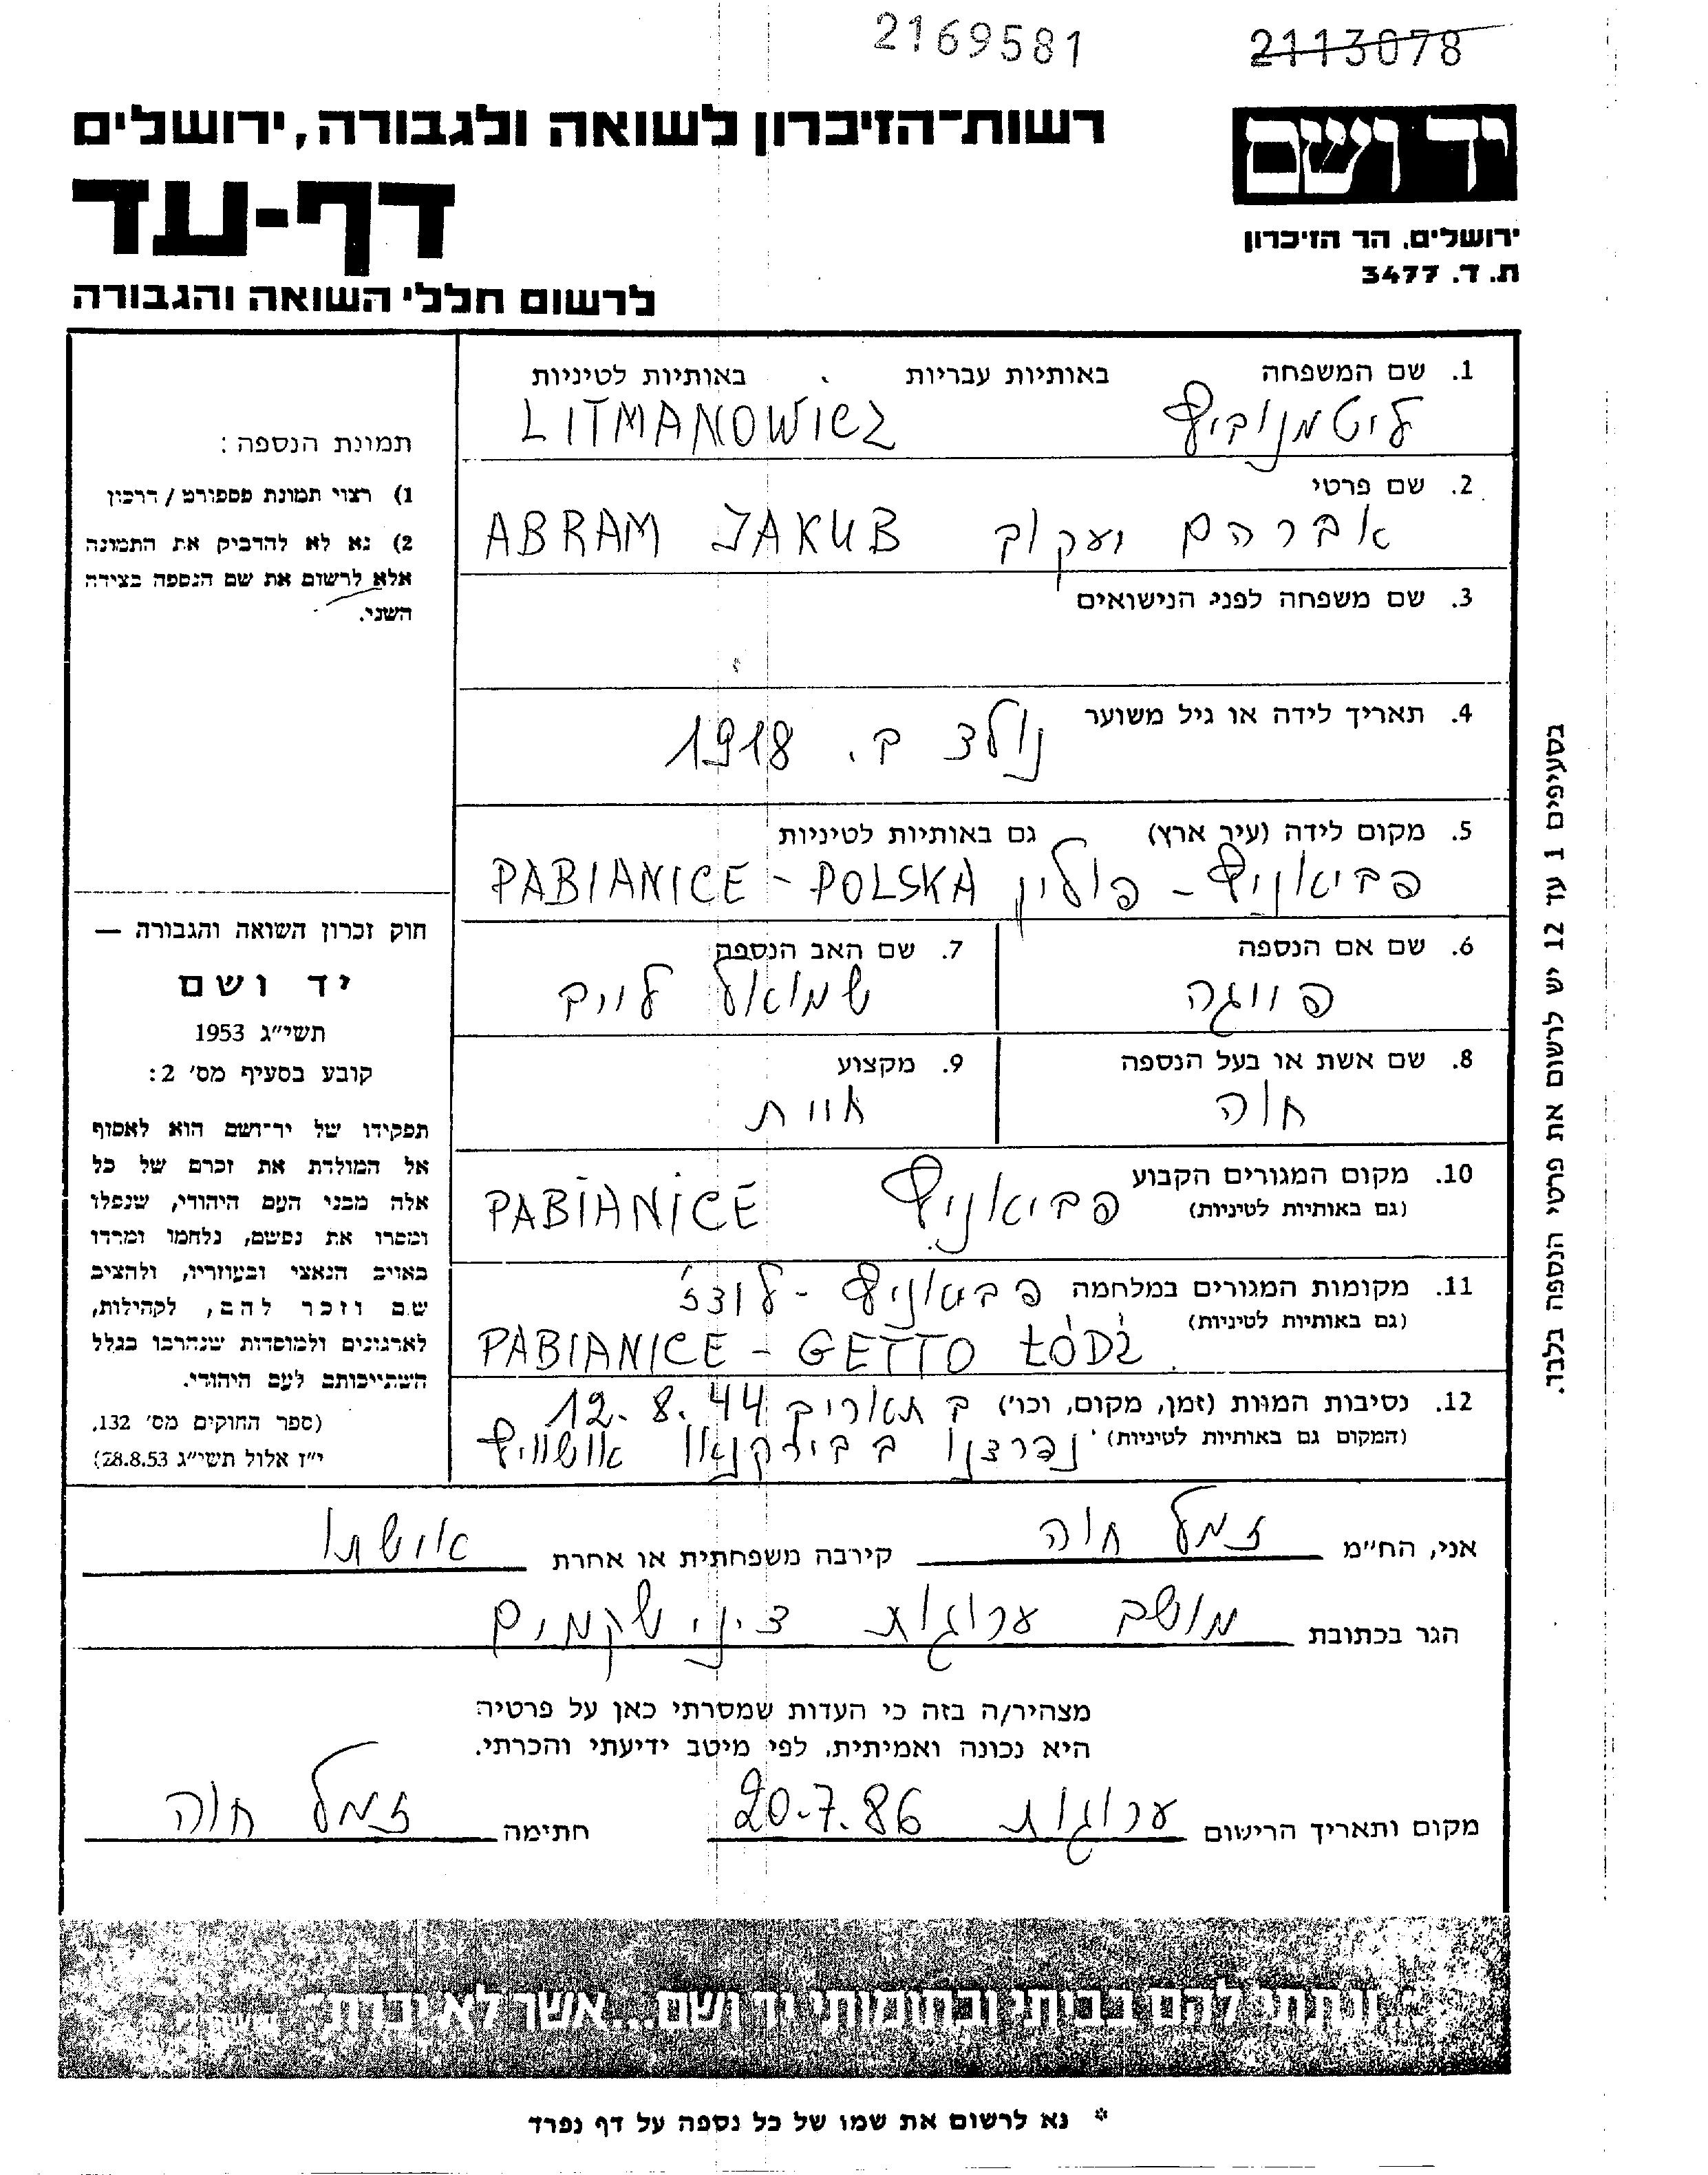 2169581
2113078
יד ושם
רשות־הזיכרון לשואה ולגבורה, ירושלים
דף-עד
ירושלים. הר הזיכרון
ת. ד. 3477
לרשום חללי השואה והגבורה
1. שם המשפחה באותיות עבריות באותיות לטיניות
ליטמנוביץ LITMANOWICZ
2. שם פרטי
אברהם יעקוב ABRAM JAKUB
3. שם משפחה לפני הנישואים
4. תאריך לידה או גיל משוער
נולד ב. 1918
5. מקום לידה (עיר ארץ) גם באותיות לטיניות
פביאניץ - פולין PABIANICE - POLSKA
6. שם אם הנספה
פייגה
7. שם האב הנספה
שמואל לייב
8. שם אשת או בעל הנספה
חוה
9. מקצוע
10. מקום המגורים הקבוע
(גם באותיות לטיניות)
פביאניץ PABIANICE
11. מקומות המגורים במלחמה פביאניץ - לודז'
(גם באותיות לטיניות)
PABIANICE - GETTO ŁÓDŹ
12. נסיבות המוות (זמן, מקום, וכו') ב תאריך 12.8.44
(המקום גם באותיות לטיניות) בבירקנאו אושוויץ
תמונת הנספה:
1) רצוי תמונת פספורט / דרכון
2) נא לא להדביק את התמונה
אלא לרשום את שם הנספה בצידה
השני.
חוק זכרון השואה והגבורה —
יד ושם
תשי״ג 1953
קובע בסעיף מס׳ 2:
תפקידו של יד־ושם הוא לאסוף
אל המולדת את זכרם של כל
אלה מבני העם היהודי, שנפלו
ומסרו את נפשם, נלחמו ומרדו
באויב הנאצי ובעוזריו, ולהציב
שם וזכר להם, לקהילות,
לארגונים ולמוסדות שנהרבו בגלל
השתייכותם לעם היהודי.
(ספר החוקים מס׳ 132,
י״ז אלול תשי״ג 28.8.53)
בסעיפים 1 עד 12 יש לרשום את פרטי הנספה בלבד.
אני, הח״מ זמל חוה קירבה משפחתית או אחרת אישתו
הגר בכתובת מושב ערוגות ד.נ. שקמים
מצהיר/ה בזה כי העדות שמסרתי כאן על פרטיה
היא נכונה ואמיתית, לפי מיטב ידיעתי והכרתי.
מקום ותאריך הרישום ערוגות 20.7.86 חתימה זמל חוה
...ונתתי להם בביתי ובחומותי יד ושם...אשר לא יכרת
* נא לרשום את שמו של כל נספה על דף נפרד